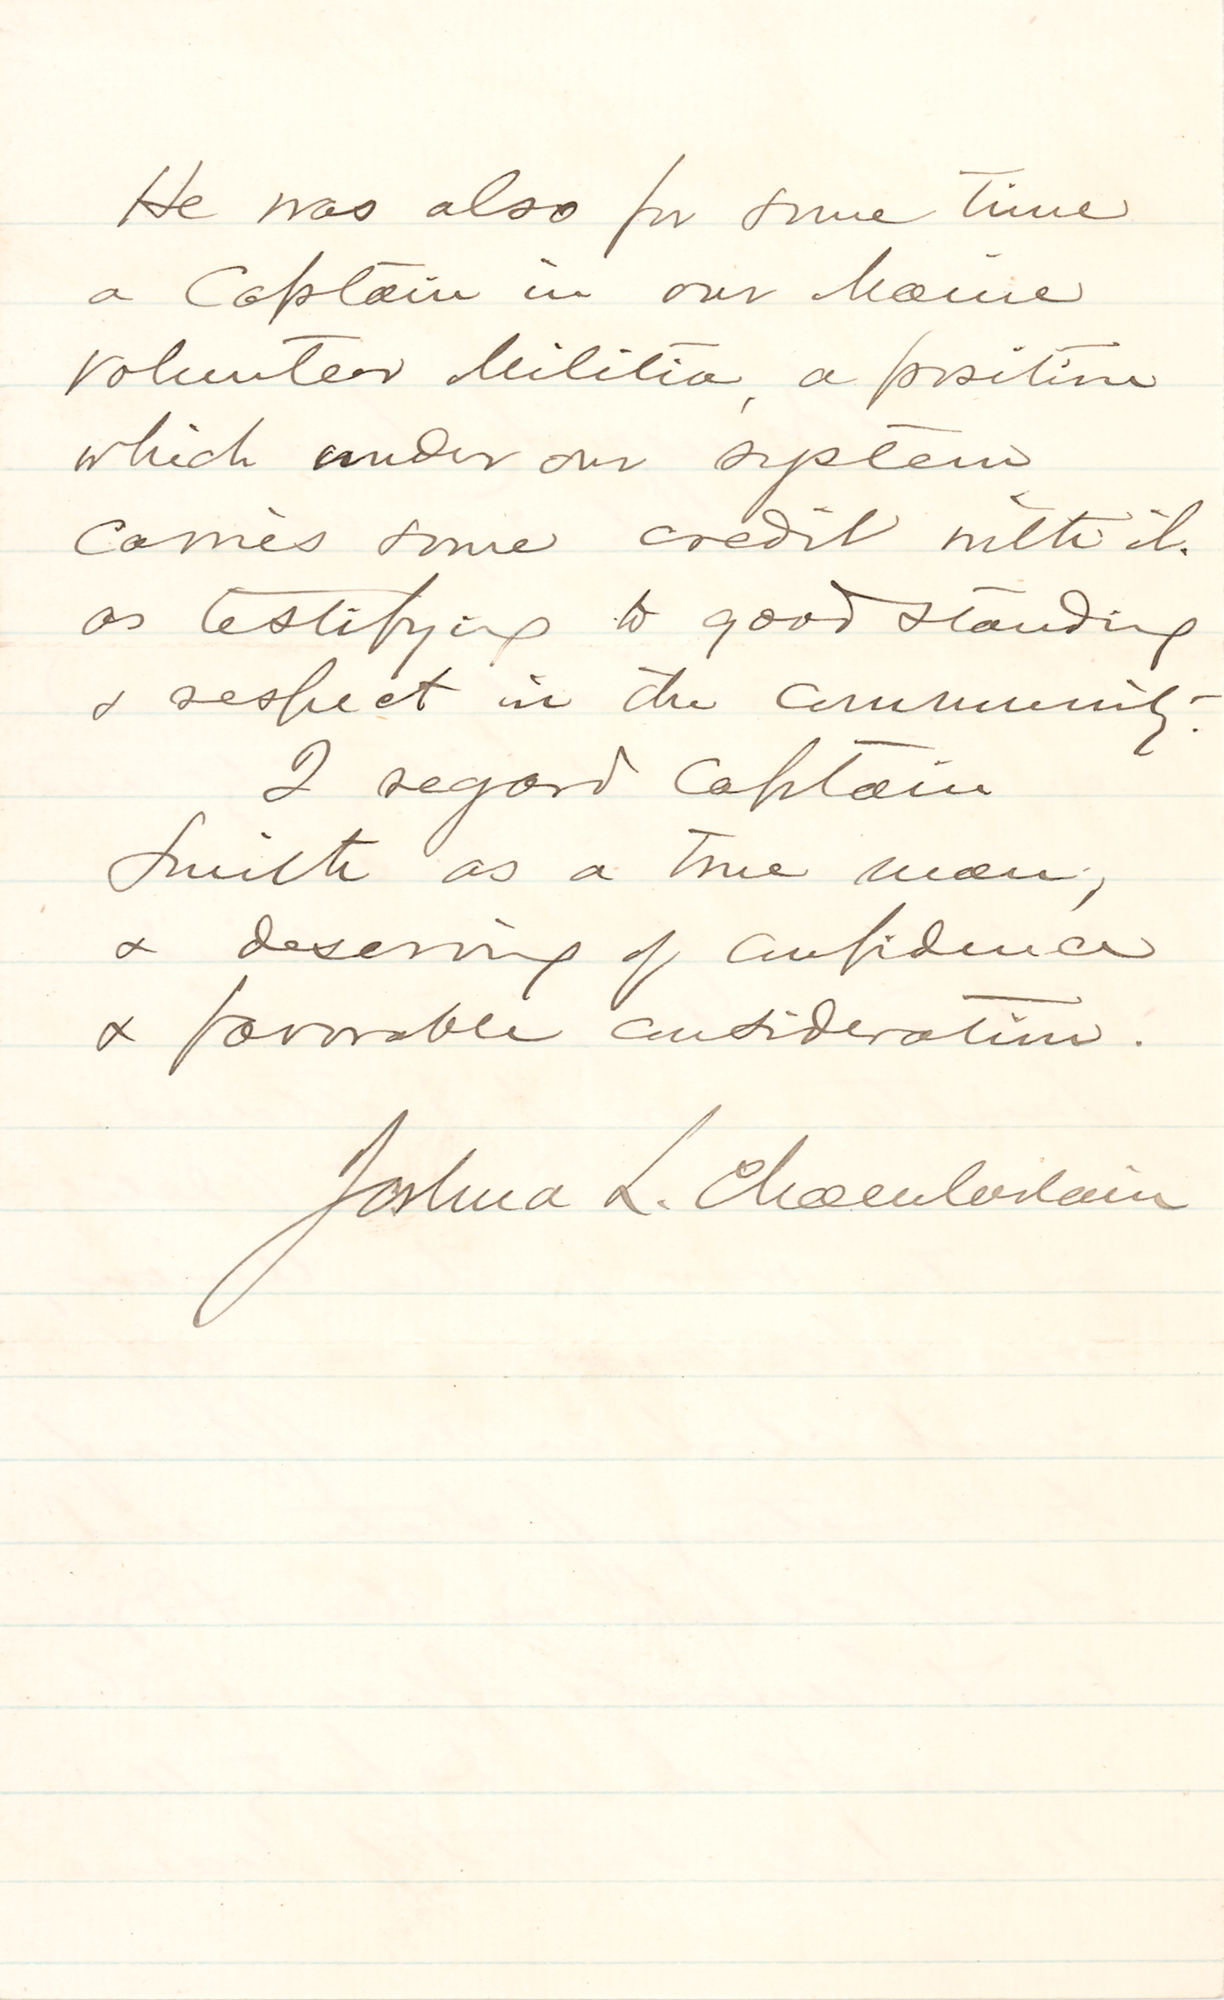 He was also for some time
a Captain in our Maine
Volunteer Militia, a position
which under our system
carries some credit with it.
as testifying to good standing
& respect in the community.
I regard Captain
Smith as a true man,
& deserving of confidence
& favorable consideration.
Joshua L. Chamberlain